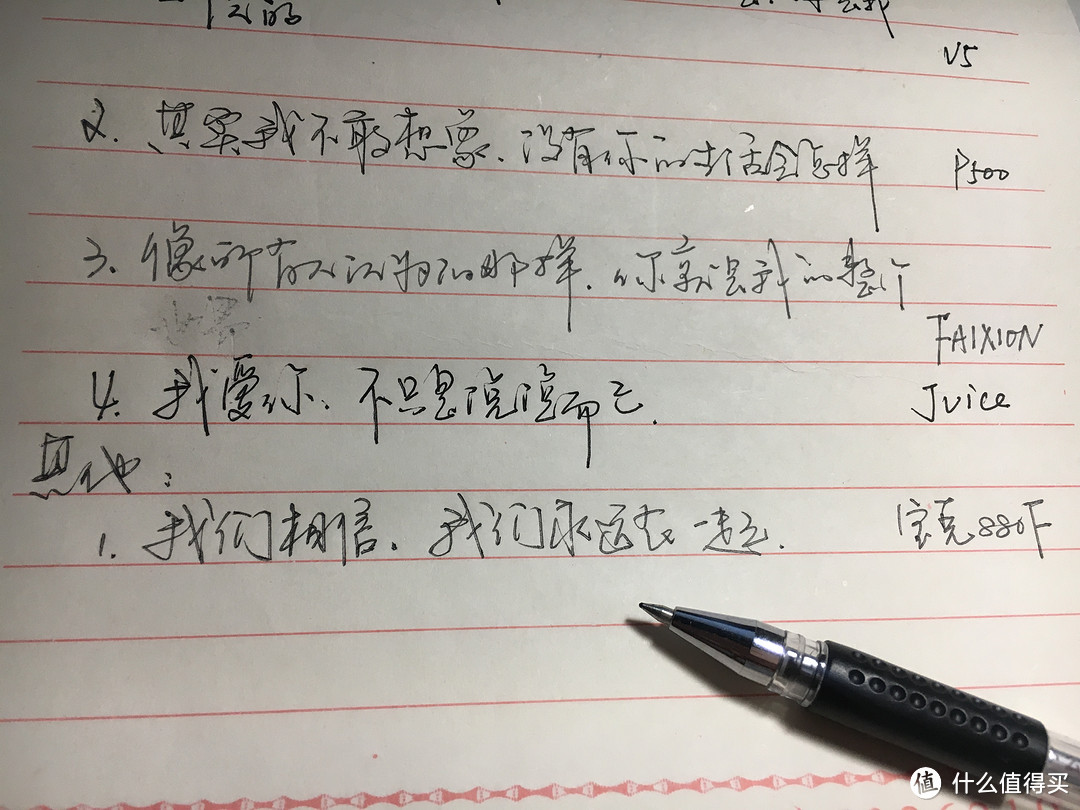 的
V5
2. 其实我不敢想象、没有你的生活会怎样 P500
3. 像所有人认为的那样、你就是我的整个
世界 FAIXION
4. 我爱你、不只是说说而已. Juice
其他:
1. 我们相信、我们永远在一起. 宝克880F
值 什么值得买